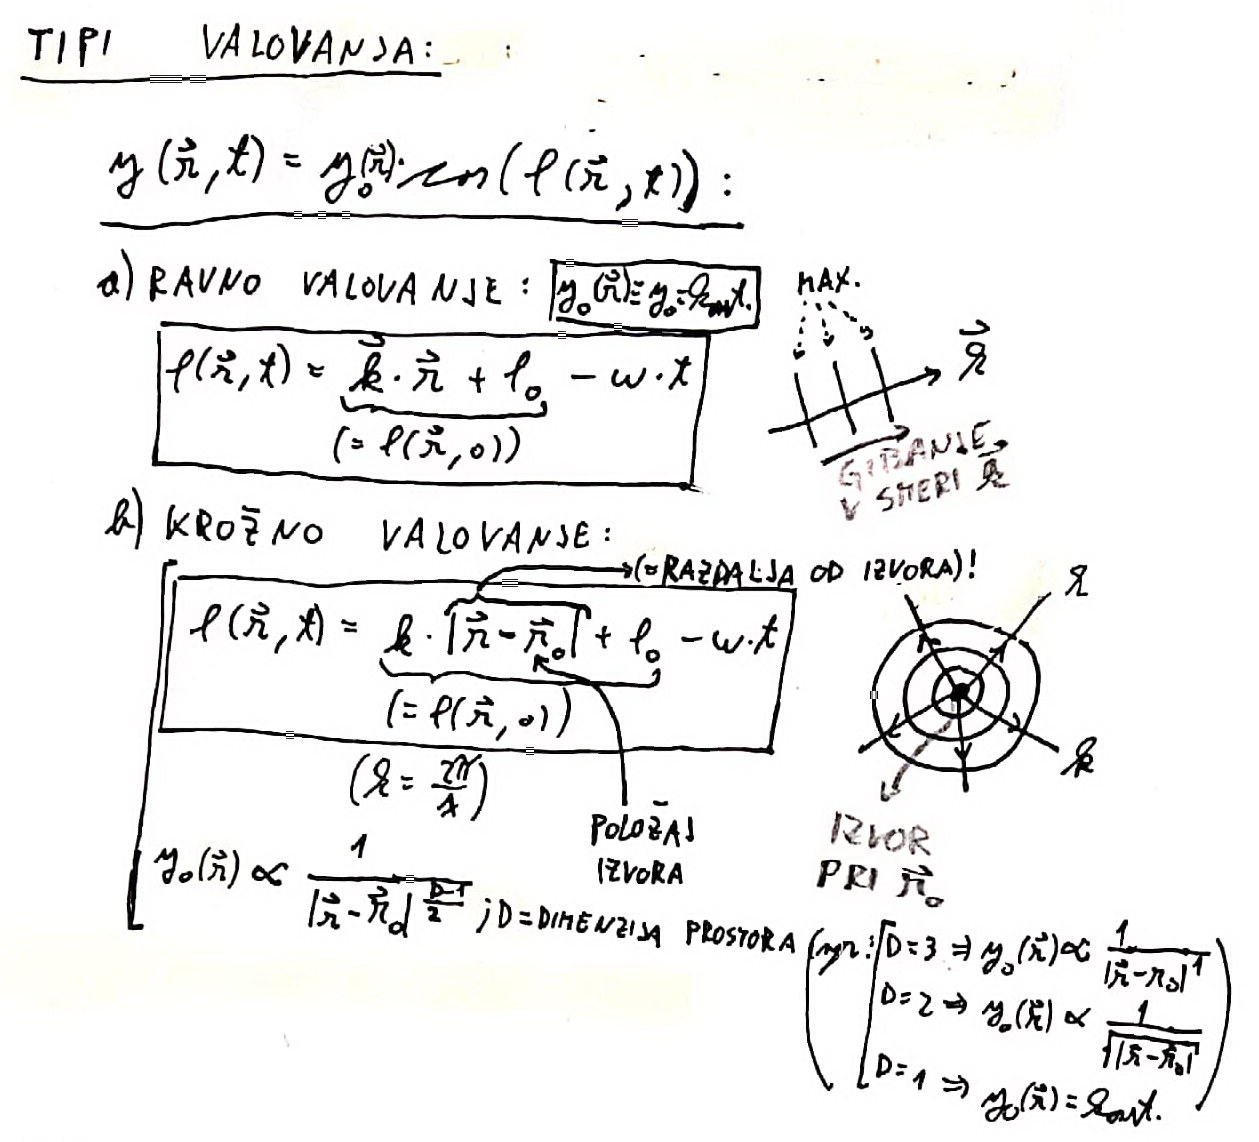 TIPI VALOVANJA:
y(r⃗,t) = y₀(r⃗)·cos(φ(r⃗,t)):
a) RAVNO VALOVANJE: y₀(r⃗) ≡ y₀ = konst.
MAX.
φ(r⃗,t) = k⃗·r⃗ + φ₀ - ω·t
(= φ(r⃗,0))
k⃗
GIBANJE
V SMERI k⃗
b) KROŽNO VALOVANJE:
(= RAZDALJA OD IZVORA)!
φ(r⃗,t) = k·|r⃗-r⃗₀| + φ₀ - ω·t
(= φ(r⃗,0))
(k = 2π/λ)
k
k
POLOŽAJ
IZVORA
IZVOR
PRI r⃗₀
y₀(r⃗) ∝ 1/|r⃗-r⃗₀|^((D-1)/2) ; D = DIMENZIJA PROSTORA (npr.: D=3 ⇒ y₀(r⃗) ∝ 1/|r⃗-r₀|¹
D=2 ⇒ y₀(r⃗) ∝ 1/√|r⃗-r⃗₀|
D=1 ⇒ y₀(r⃗) = konst.)